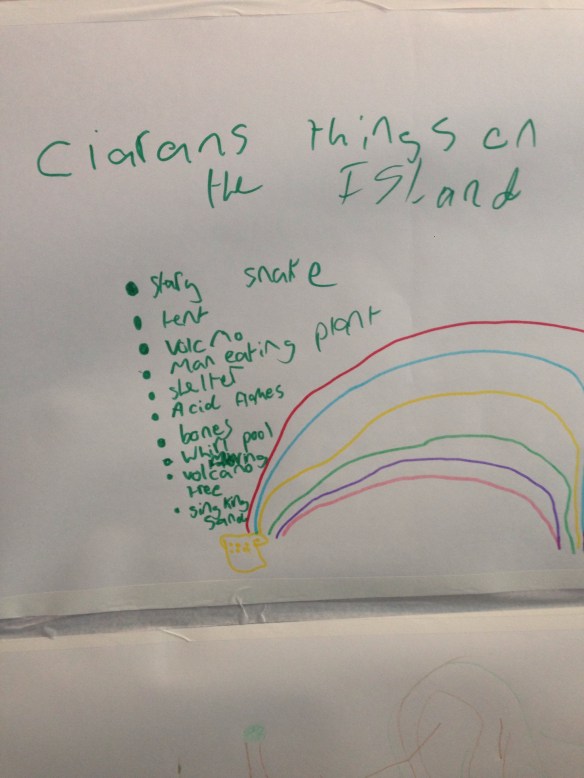 Ciarans things on
the ISland
• stary snake
• tent
• volcano
• Man eating plant
• shelter
• Acid flames
• bones
• Whirl pool
• volcano
tree
• singking
sand